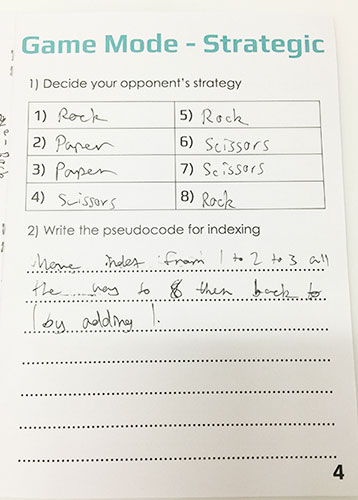 Game Mode - Strategic
1) Decide your opponent's strategy
1) Rock
5) Rock
2) Paper
6) Scissors
3) Paper
7) Scissors
4) Scissors
8) Rock
2) Write the pseudocode for indexing
Move index from 1 to 2 to 3 all
the way to 8 then back to
1 by adding 1.
4